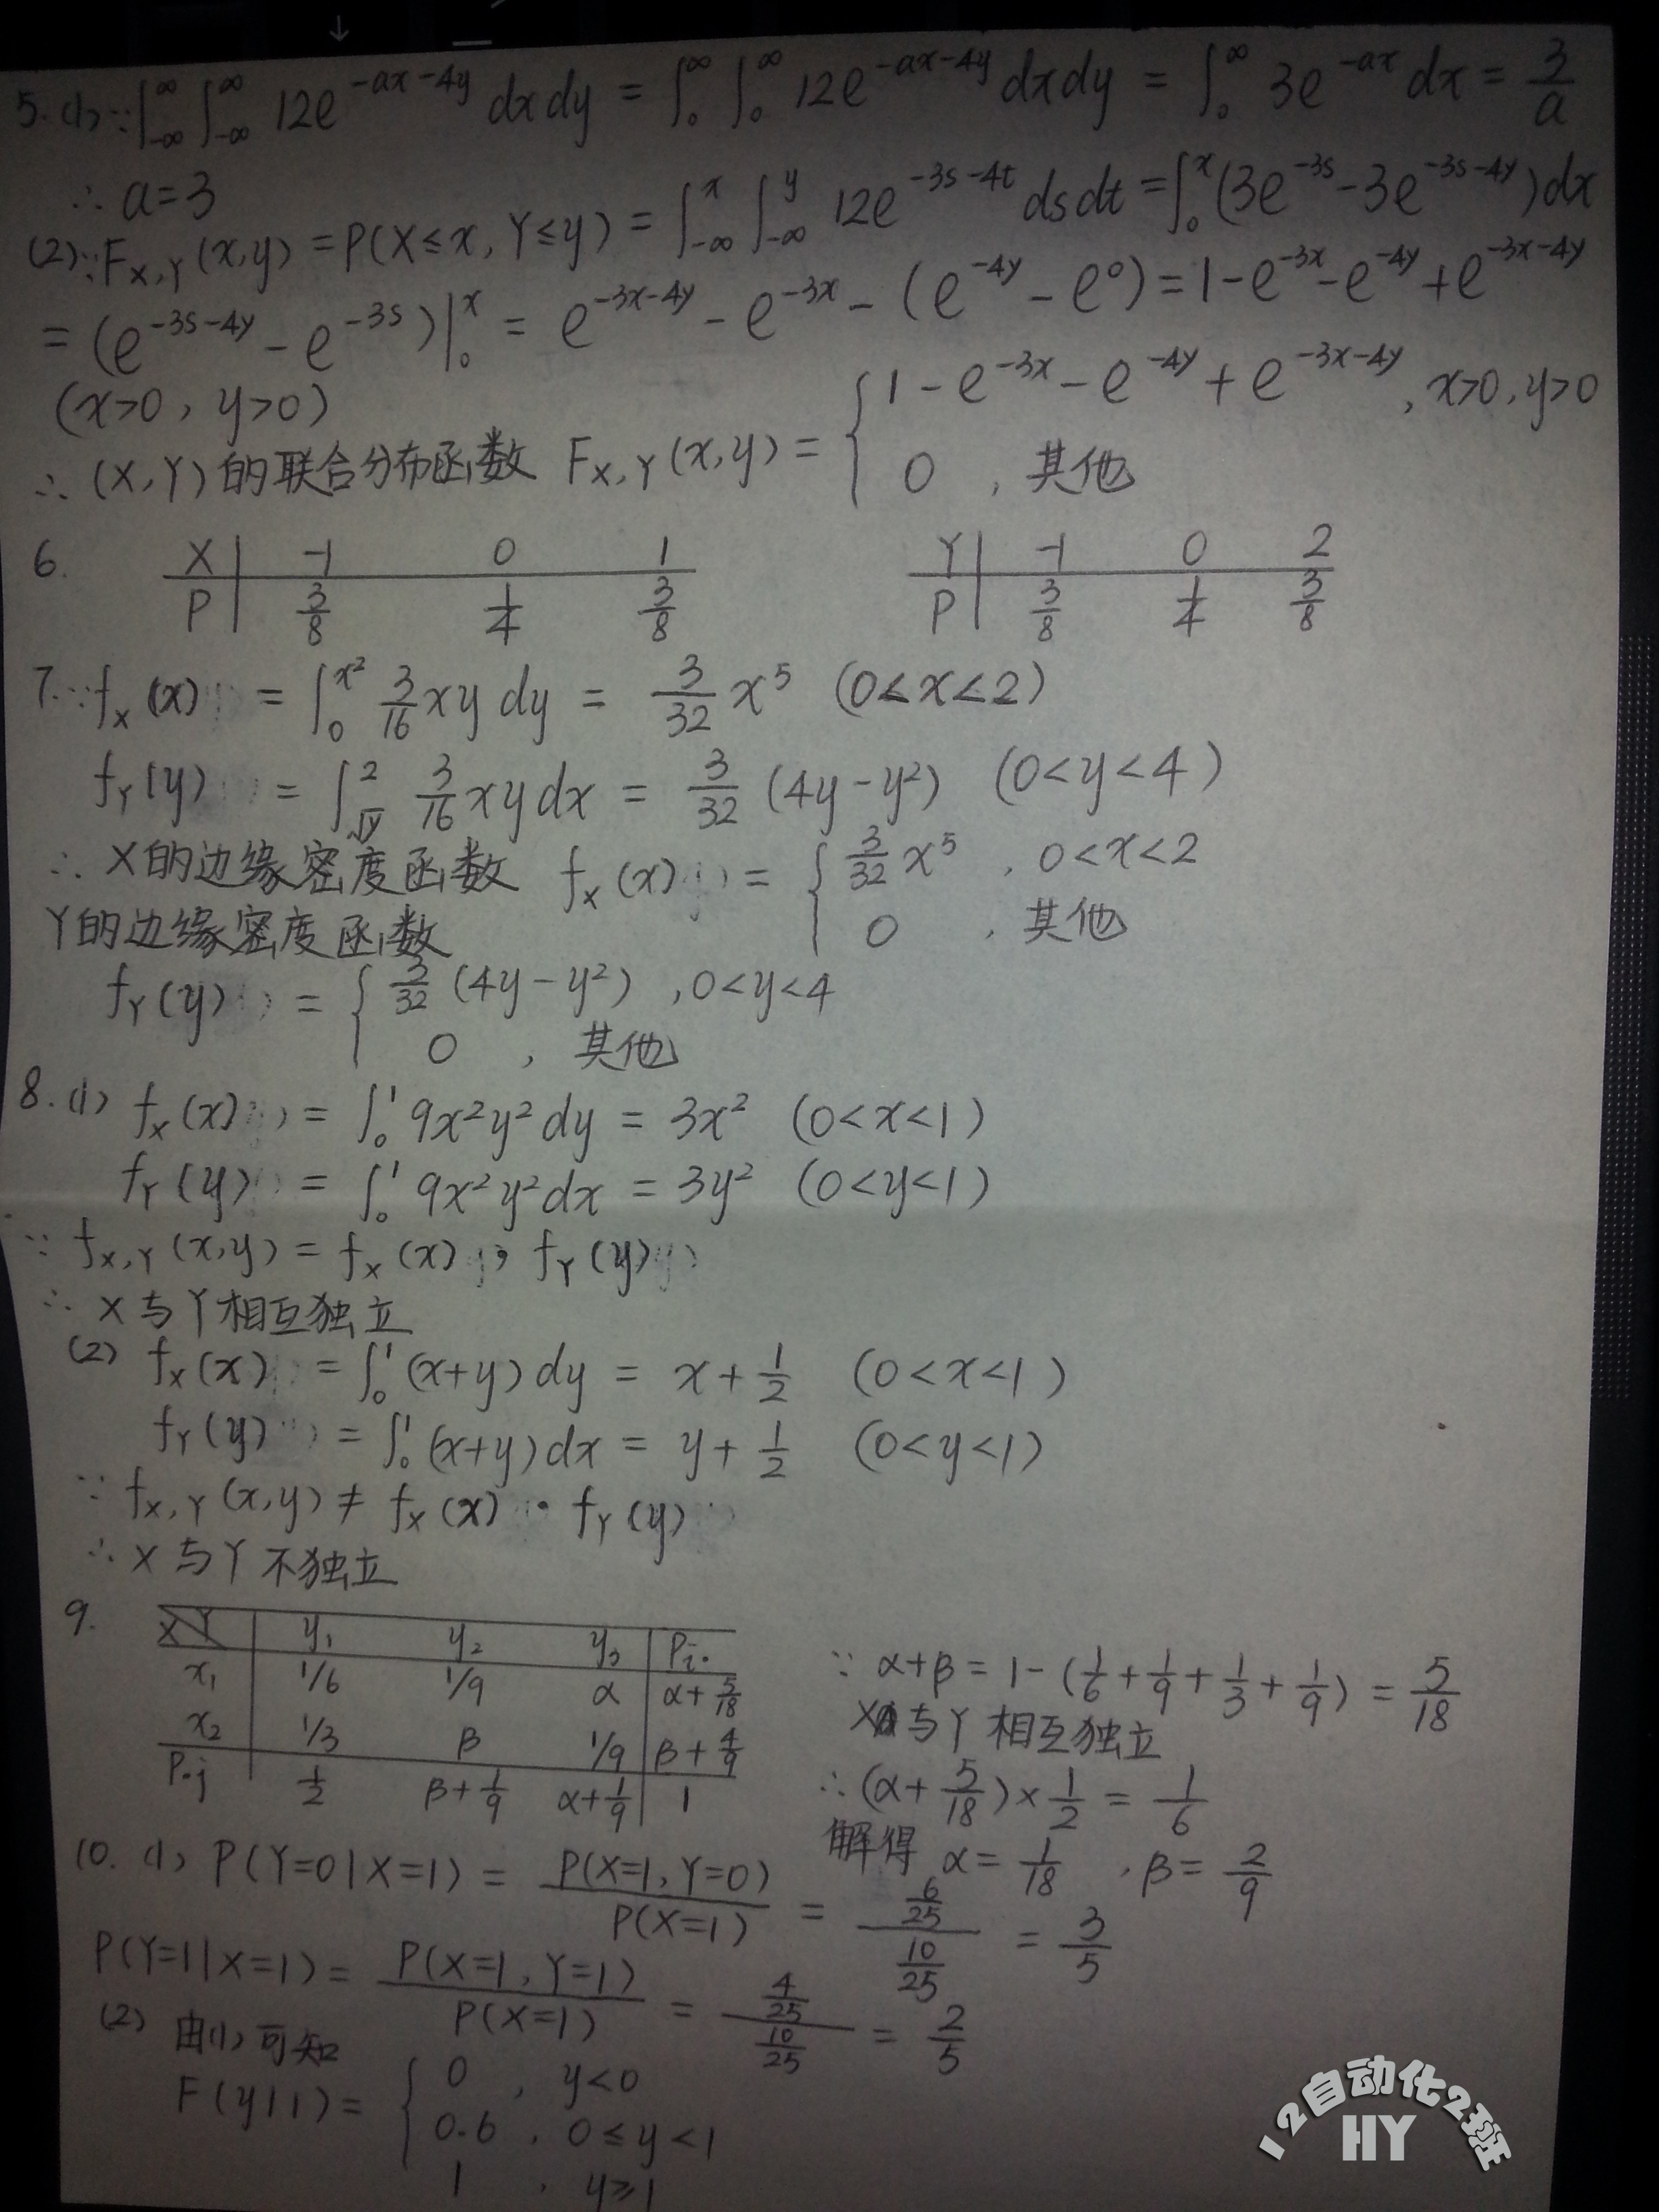 5.(1)∵∫_{-∞}^{∞}∫_{-∞}^{∞} 12e^{-ax-4y}dxdy = ∫_0^∞∫_0^∞ 12e^{-ax-4y}dxdy = ∫_0^∞ 3e^{-ax}dx = 3/a
∴ a=3
(2)∵F_{X,Y}(x,y) = P(X≤x, Y≤y) = ∫_{-∞}^x∫_{-∞}^y 12e^{-3s-4t}dsdt = ∫_0^x(3e^{-3s}-3e^{-3s-4y})dx
= (e^{-3s-4y} - e^{-3s})|_0^x = e^{-3x-4y} - e^{-3x} - (e^{-4y} - e^0) = 1-e^{-3x}-e^{-4y}+e^{-3x-4y}
(x>0, y>0)
∴ (X,Y)的联合分布函数 F_{X,Y}(x,y) = { 1-e^{-3x}-e^{-4y}+e^{-3x-4y}, x>0,y>0
0 , 其他
6. X | -1 0 1 Y | -1 0 2
P | 3/8 1/4 3/8 P | 3/8 1/4 3/8
7.∵f_X(x) = ∫_0^{x²} 3/16 xy dy = 3/32 x⁵ (0<x<2)
f_Y(y) = ∫_{√y}^2 3/16 xy dx = 3/32 (4y-y²) (0<y<4)
∴ X的边缘密度函数 f_X(x) = { 3/32 x⁵ , 0<x<2
0 , 其他
Y的边缘密度函数
f_Y(y) = { 3/32 (4y-y²) , 0<y<4
0 , 其他
8.(1) f_X(x) = ∫_0^1 9x²y²dy = 3x² (0<x<1)
f_Y(y) = ∫_0^1 9x²y²dx = 3y² (0<y<1)
∵ f_{X,Y}(x,y) = f_X(x) · f_Y(y)
∴ X与Y相互独立
(2) f_X(x) = ∫_0^1 (x+y)dy = x+1/2 (0<x<1)
f_Y(y) = ∫_0^1 (x+y)dx = y+1/2 (0<y<1)
∵ f_{X,Y}(x,y) ≠ f_X(x) · f_Y(y)
∴ X与Y不独立
9. X Y | y₁ y₂ y₃ | P_{i·}
x₁ | 1/6 1/9 α | α+5/18
x₂ | 1/3 β 1/9 | β+4/9
P_{·j} | 1/2 β+1/9 α+1/9 | 1
∵ α+β = 1-(1/6+1/9+1/3+1/9) = 5/18
X与Y相互独立
∴ (α+5/18)×1/2 = 1/6
解得 α=1/18 , β=2/9
10.(1) P(Y=0|X=1) = P(X=1,Y=0)/P(X=1) = (6/25)/(10/25) = 3/5
P(Y=1|X=1) = P(X=1,Y=1)/P(X=1) = (4/25)/(10/25) = 2/5
(2) 由(1)可知
F(y|1) = { 0 , y<0
0.6 , 0≤y<1
1 , y≥1
12自动化2班
HY